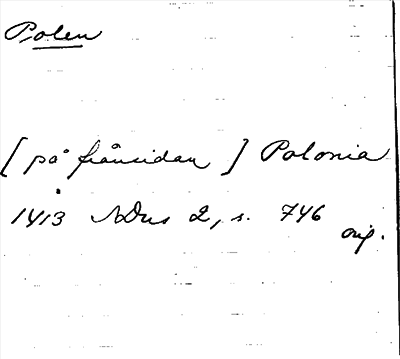 Polen
[på frånsidan] Polonia
1413 SDns 2, s. 746
orig.